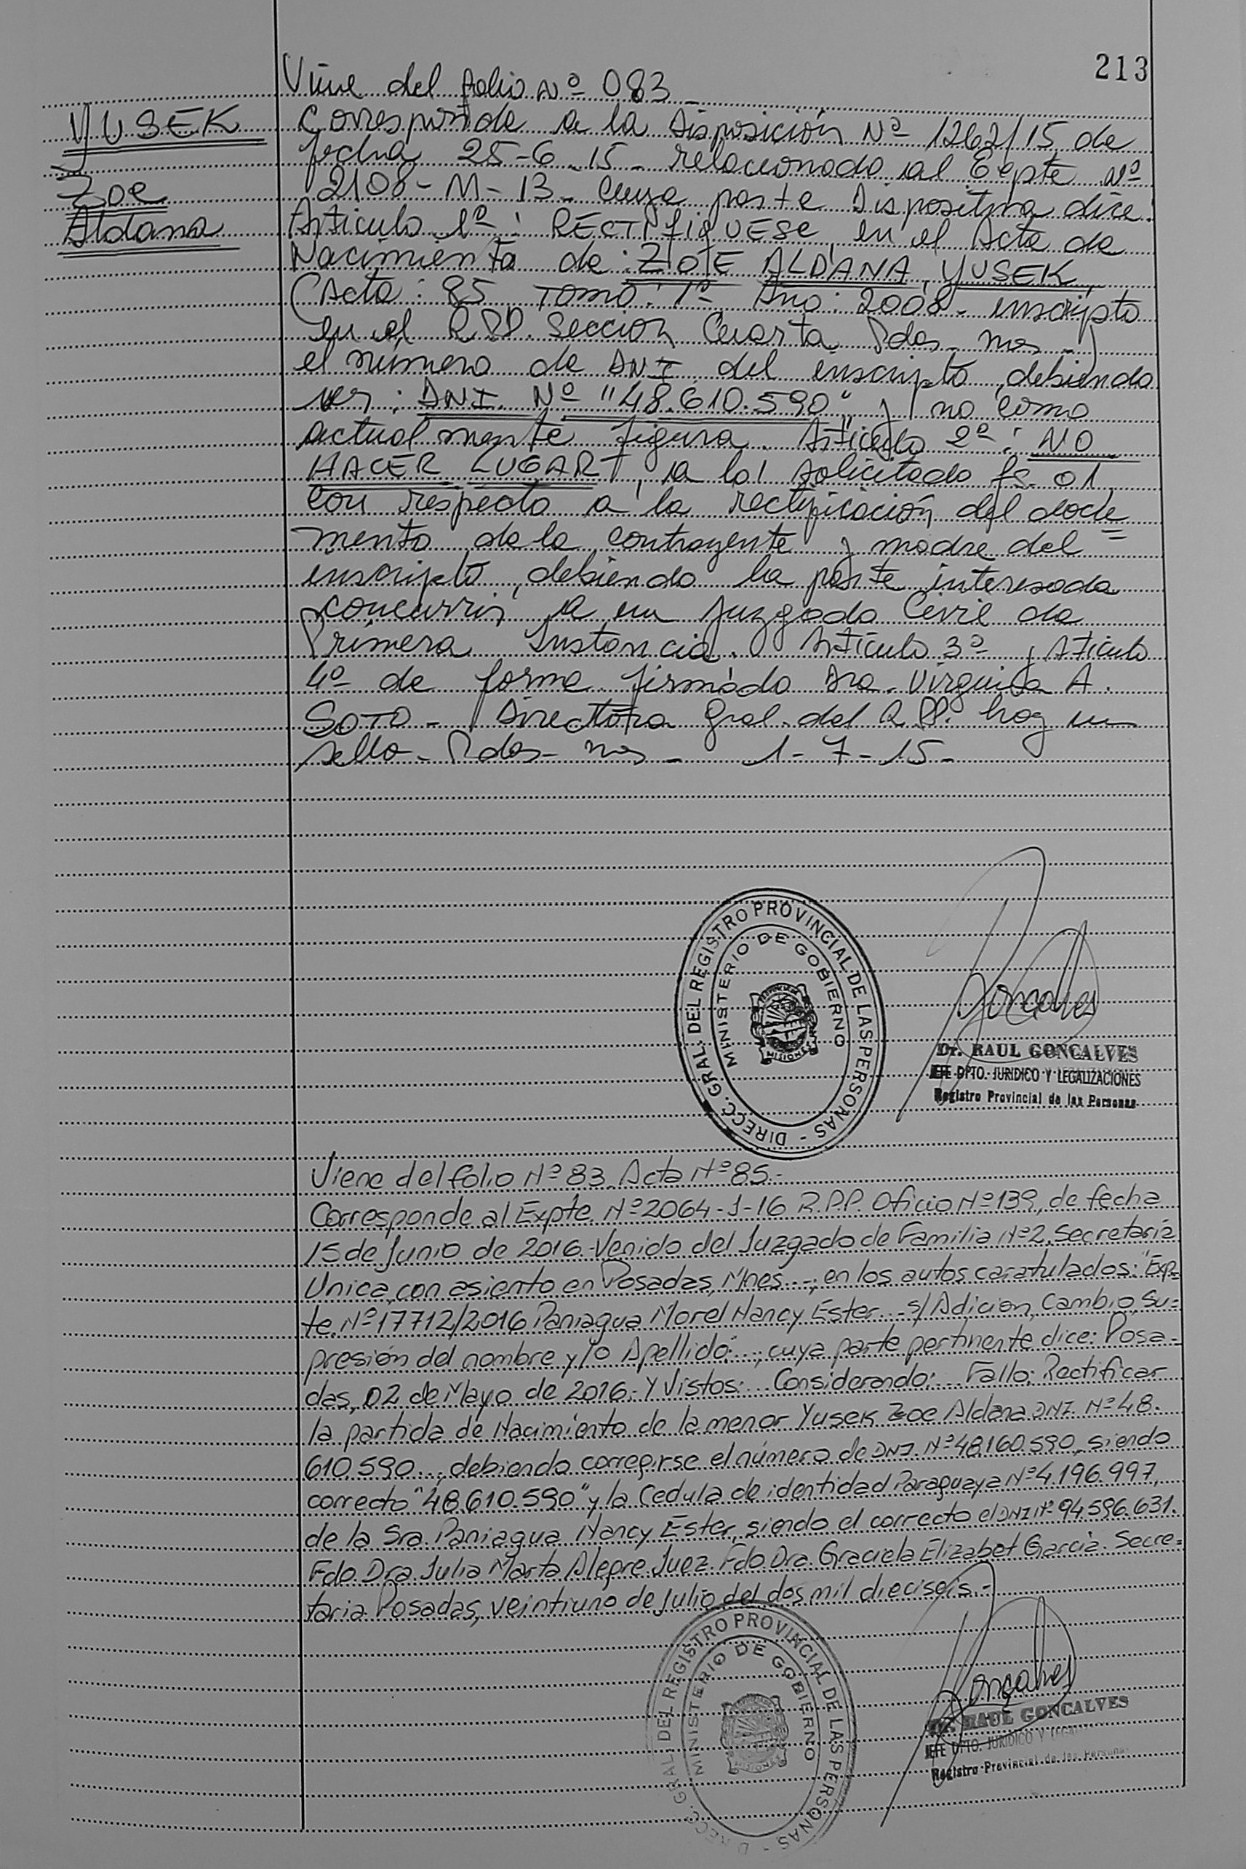 213
Viene del folio Nº 083_
YUSEK
Zoe
Aldana
Corresponde a la Disposición Nº 1262/15 de
fecha 25-6-15- relacionado al Expte Nº
2108-M-13- Cuya parte Dispositiva dice:
Articulo 1º: RECTIFIQUESE, en el Acta de
Nacimiento de: ZOE ALDANA YUSEK,
(Acta: 85 Tomo: 1º Año: 2008- inscripto
en el R.P.P. Sección Cuarta Pdas- Mnes-)
el número de DNI del inscripto, debiendo
ser: DNI. Nº "48.610.590" y no como
actualmente figura. Articulo 2º: NO
HACER LUGAR, a lo solicitado fs. 01,
con respecto a la rectificación del docu=
mento de la contrayente y madre del
inscripto, debiendo la parte interesada
concurrir a un Juzgado Civil de
Primera Instancia. Artículo 3º, Aticulo
4º de forma firmado Dra. Virginia A.
SOTO- Directora Gral. del R.P.P. hay un
sello- Pdas- Mnes- 1-7-15-
DIRECC. GRAL. DEL REGISTRO PROVINCIAL DE LAS PERSONAS -
MINISTERIO DE GOBIERNO
MISIONES
Goncalves
Dr. RAUL GONCALVES
JEFE DPTO. JURIDICO Y LEGALIZACIONES
Registro Provincial de las Personas
Viene del folio Nº 83 Acta Nº 85.-
Corresponde al Expte. Nº 2064-J-16 R.P.P. Oficio Nº 139, de fecha
15 de Junio de 2016.- Venido del Juzgado de Familia Nº 2, Secretaria
Unica, con asiento en Posadas, Mnes...-, en los autos caratulados: "Exp-
te. Nº 17712/2016 Paniagua Morel Nancy Ester... s/ Adicion, Cambio, Su=
presión del nombre y/o Apellido"..., cuya parte pertinente, dice: Posa-
das, 02 de Mayo de 2016.- Y Vistos:... Considerando:... Fallo: Rectificar
la partida de Nacimiento de la menor Yusek Zoe Aldana DNI. Nº 48.
610.590..., debiendo corregirse el número de DNI. Nº 48.160.590, siendo
correcto "48.610.590" y la Cedula de identidad Paraguaya Nº 4.196.997,
de la Sra. Paniagua Nancy Ester, siendo el correcto el DNI Nº 94.596.631.
Fdo. Dra. Julia Marta Alegre Juez. Fdo. Dra. Graciela Elizabet Garcia. Secre=
taria. Posadas, veintiuno de Julio del dos mil dieciseis.-
DIRECC. GRAL. DEL REGISTRO PROVINCIAL DE LAS PERSONAS -
MINISTERIO DE GOBIERNO
Gonçalves
Dr. RAUL GONCALVES
JEFE DPTO. JURIDICO Y
Registro Provincial de las Personas